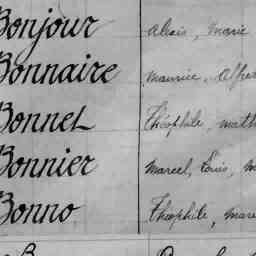 Bonjour Alexis, Marie
Bonnaire Maurice, Alfred
Bonnet Théophile, Math
Bonnier Marcel, Louis, M
Bonno Théophile, Marc